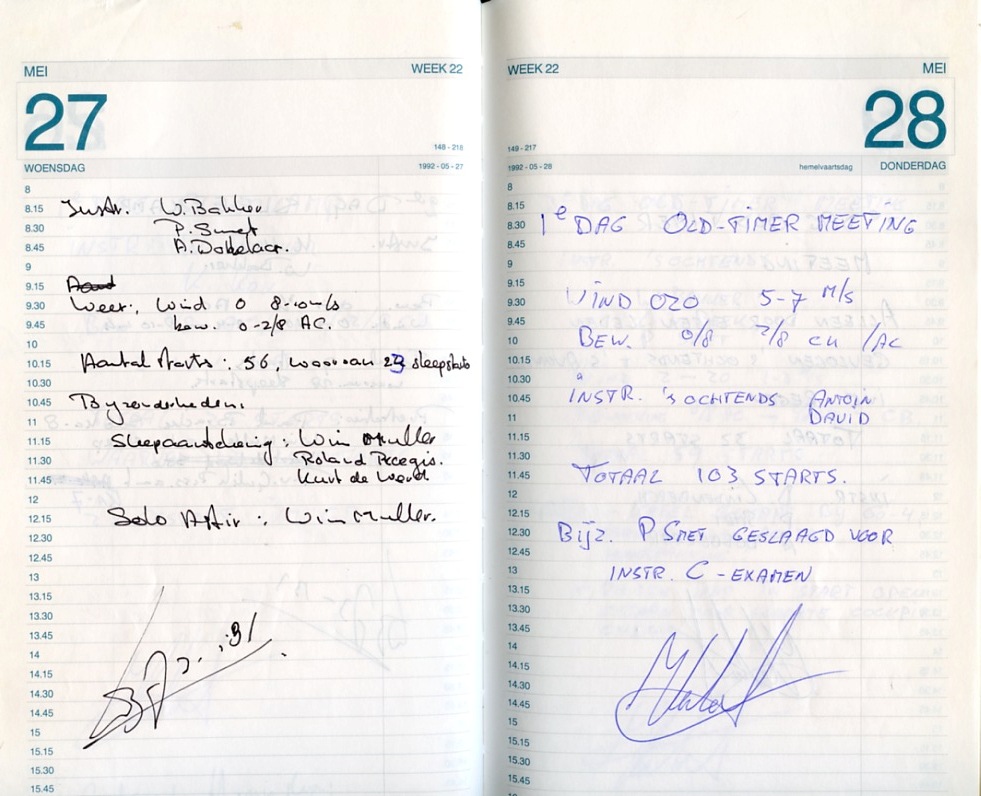 MEI WEEK 22
27
148 - 218
WOENSDAG 1992 - 05 - 27
8
8.15 Instr. W. Bakker
8.30 P. Smet
8.45 A. Dobelaer.
9
9.15
9.30 Weer: Wind O 8-10 m/s
9.45 bew. 0-2/8 AC.
10
10.15 Aantal starts : 56, waarvan 23 sleepstarts
10.30
10.45 Byzonderheden.
11
11.15 Sleepaantekening : Wim Muller
11.30 Roland
11.45 Kurt de
12
12.15 Solo Astir : Wim Muller.
12.30
12.45
13
13.15
13.30
13.45
14
14.15
14.30
14.45
15
15.15
15.30
15.45
WEEK 22 MEI
28
149 - 217
1992 - 05 - 28 hemelvaartsdag DONDERDAG
8
8.15
8.30 1e DAG OLD-TIMER MEETING
8.45
9
9.15
9.30 WIND OZO 5-7 M/S
9.45
10 BEW. 0/8 2/8 CU /AC
10.15
10.30
10.45 INSTR. 'S OCHTENDS ANTOIN
11 DAVID
11.15
11.30
11.45 TOTAAL 103 STARTS.
12
12.15
12.30 Bijz. P SMET GESLAAGD VOOR
12.45
13 INSTR. C - EXAMEN
13.15
13.30
13.45
14
14.15
14.30
14.45
15
15.15
15.30
15.45